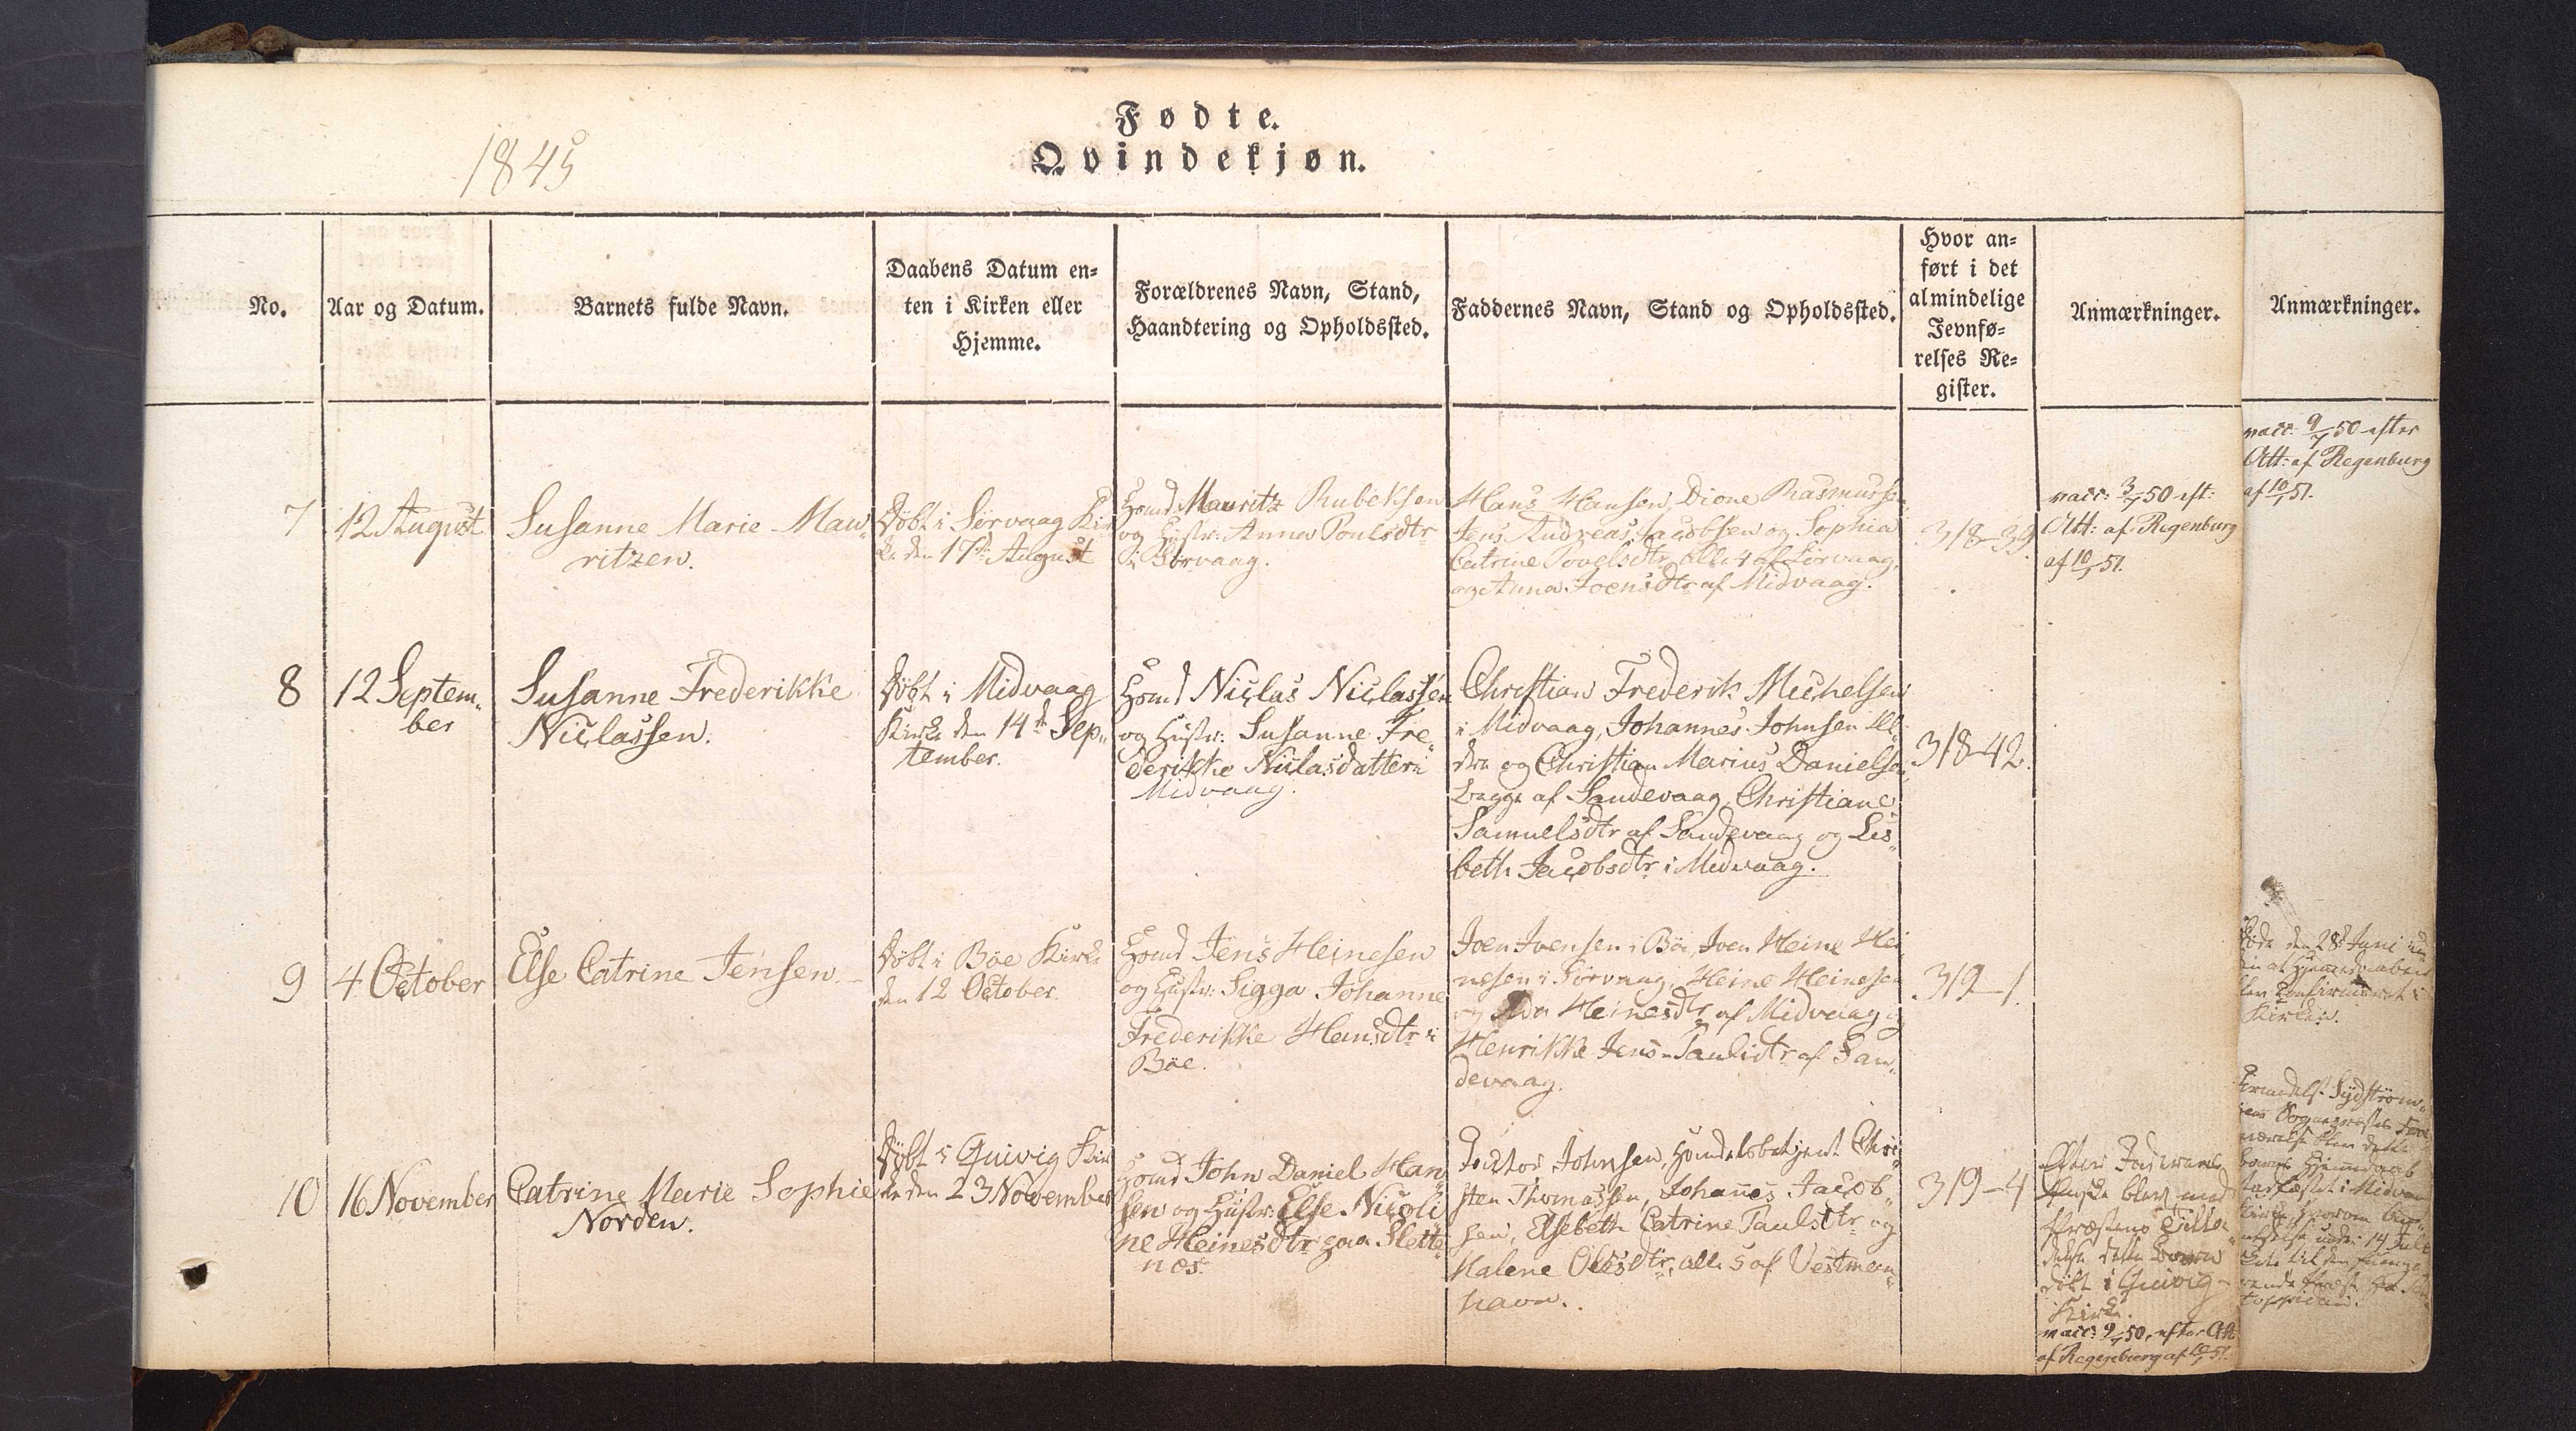 Fødte.
Qvindekjøn.
1845
No.
Aar og Datum.
Barnets fulde Navn.
Daabens Datum en=
ten i Kirken eller
Hjemme.
Forældrenes Navn, Stand,
Haandtering og Opholdssted.
Faddernes Navn, Stand og Opholdssted.
Hvor an=
ført i det
almindelige
Jevnfø=
relses Re=
gister.
Anmærkninger.
7
12 August
Susanne Marie Mau„
ritzen.
Døbt i Sörvaag Kir
ke den 17de August
Hmd Mauritz Rubeksen
og Hustr: Anna Poulsdtr
i Sörvaag.
Hans Hansen, Dione Rasmuss
Jens Andreas Jacobsen og Sophia
Catrine Povelsdtr, alle 4 af Sörvaag,
og Anna Joensdtr af Midvaag.
318-39
vacc: 3/7 50 eft:
Att: af Regenburg
af 10/5 51.
8
12 Septem„
ber
Susanne Frederikke
Niclassen.
Døbt i Midvaag
Kirke den 14de Sep„
tember.
Hmd Niclas Niclassen
og Hustr: Susanne Fre„
derikke Niclasdatter i
Midvaag.
Christian Frederik Michelsen
i Midvaag, Johannes Johnsen Æl
dre og Christian Marius Danielsen
begge af Sandevaag, Christiane
Samuelsdtr af Sandevaag og Lis„
beth Jacobsdtr i Midvaag.
318-42.
9
4 October
Else Catrine Jensen.
Døbt i Böe Kirke
den 12 October.
Hmd Jens Heinesen
og Hustr: Sigga Johanne
Frederikke Hansdtr i
Böe.
Joen Joensen i Böe, Joen Heine Hei
nesen i Sörvaag, Heine Heinesen
og Ada Heinesdtr af Midvaag og
Henrikke Jens-Paulsdtr af San„
devaag.
319-1
10
16 November
Catrine Marie Sophie
Norden.
Døbt i Qvivig Kir
ke den 23 November
Hmd John Daniel Han
sen og Hustr: Else Nicoli
ne Heinesdtr paa Slette„
næs.
Johnsen, Handelsbetjent Chri„
sten Thomassen, Johannes Jacob„
sen, Elsebeth Catrine Paulsdtr og
Malene Olesdtr, alle 5 af Vestman„
havn.
319-4
Efter Forældrenes
blev med
Præstens Tilla„
delse dette Barn
døbt i Qvivig
Kirke.
vacc: 9/7 50, efter Att
af Regenburg af 10/5 51.
Anmærkninger.
vacc. 9/7 50 efter
Att: af Regenburg
af 10/5 51.
den 28de Juni
Kirken.